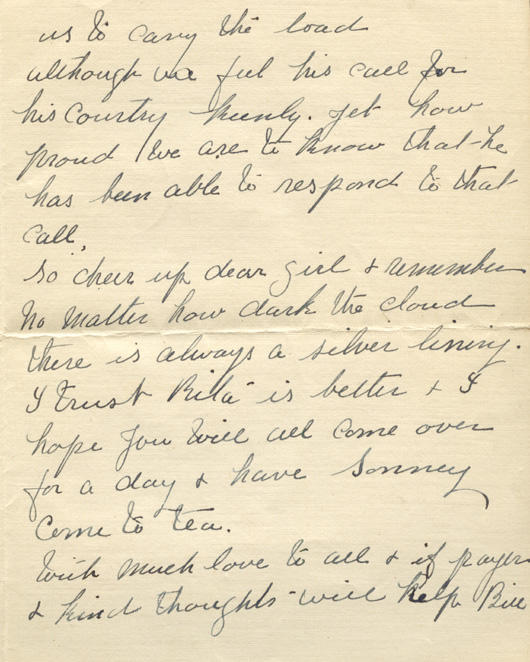 us to carry the load
although we feel his call for
his Country keenly. Yet how
proud we are to know that he
has been able to respond to that
Call,
So cheer up dear girl & remember
no matter how dark the cloud
there is always a silver lining.
I trust Rita is better & I
hope you will all come over
for a day & have Sonney
Come to tea.
With much love to all & if prayer
& kind thoughts will help Bill